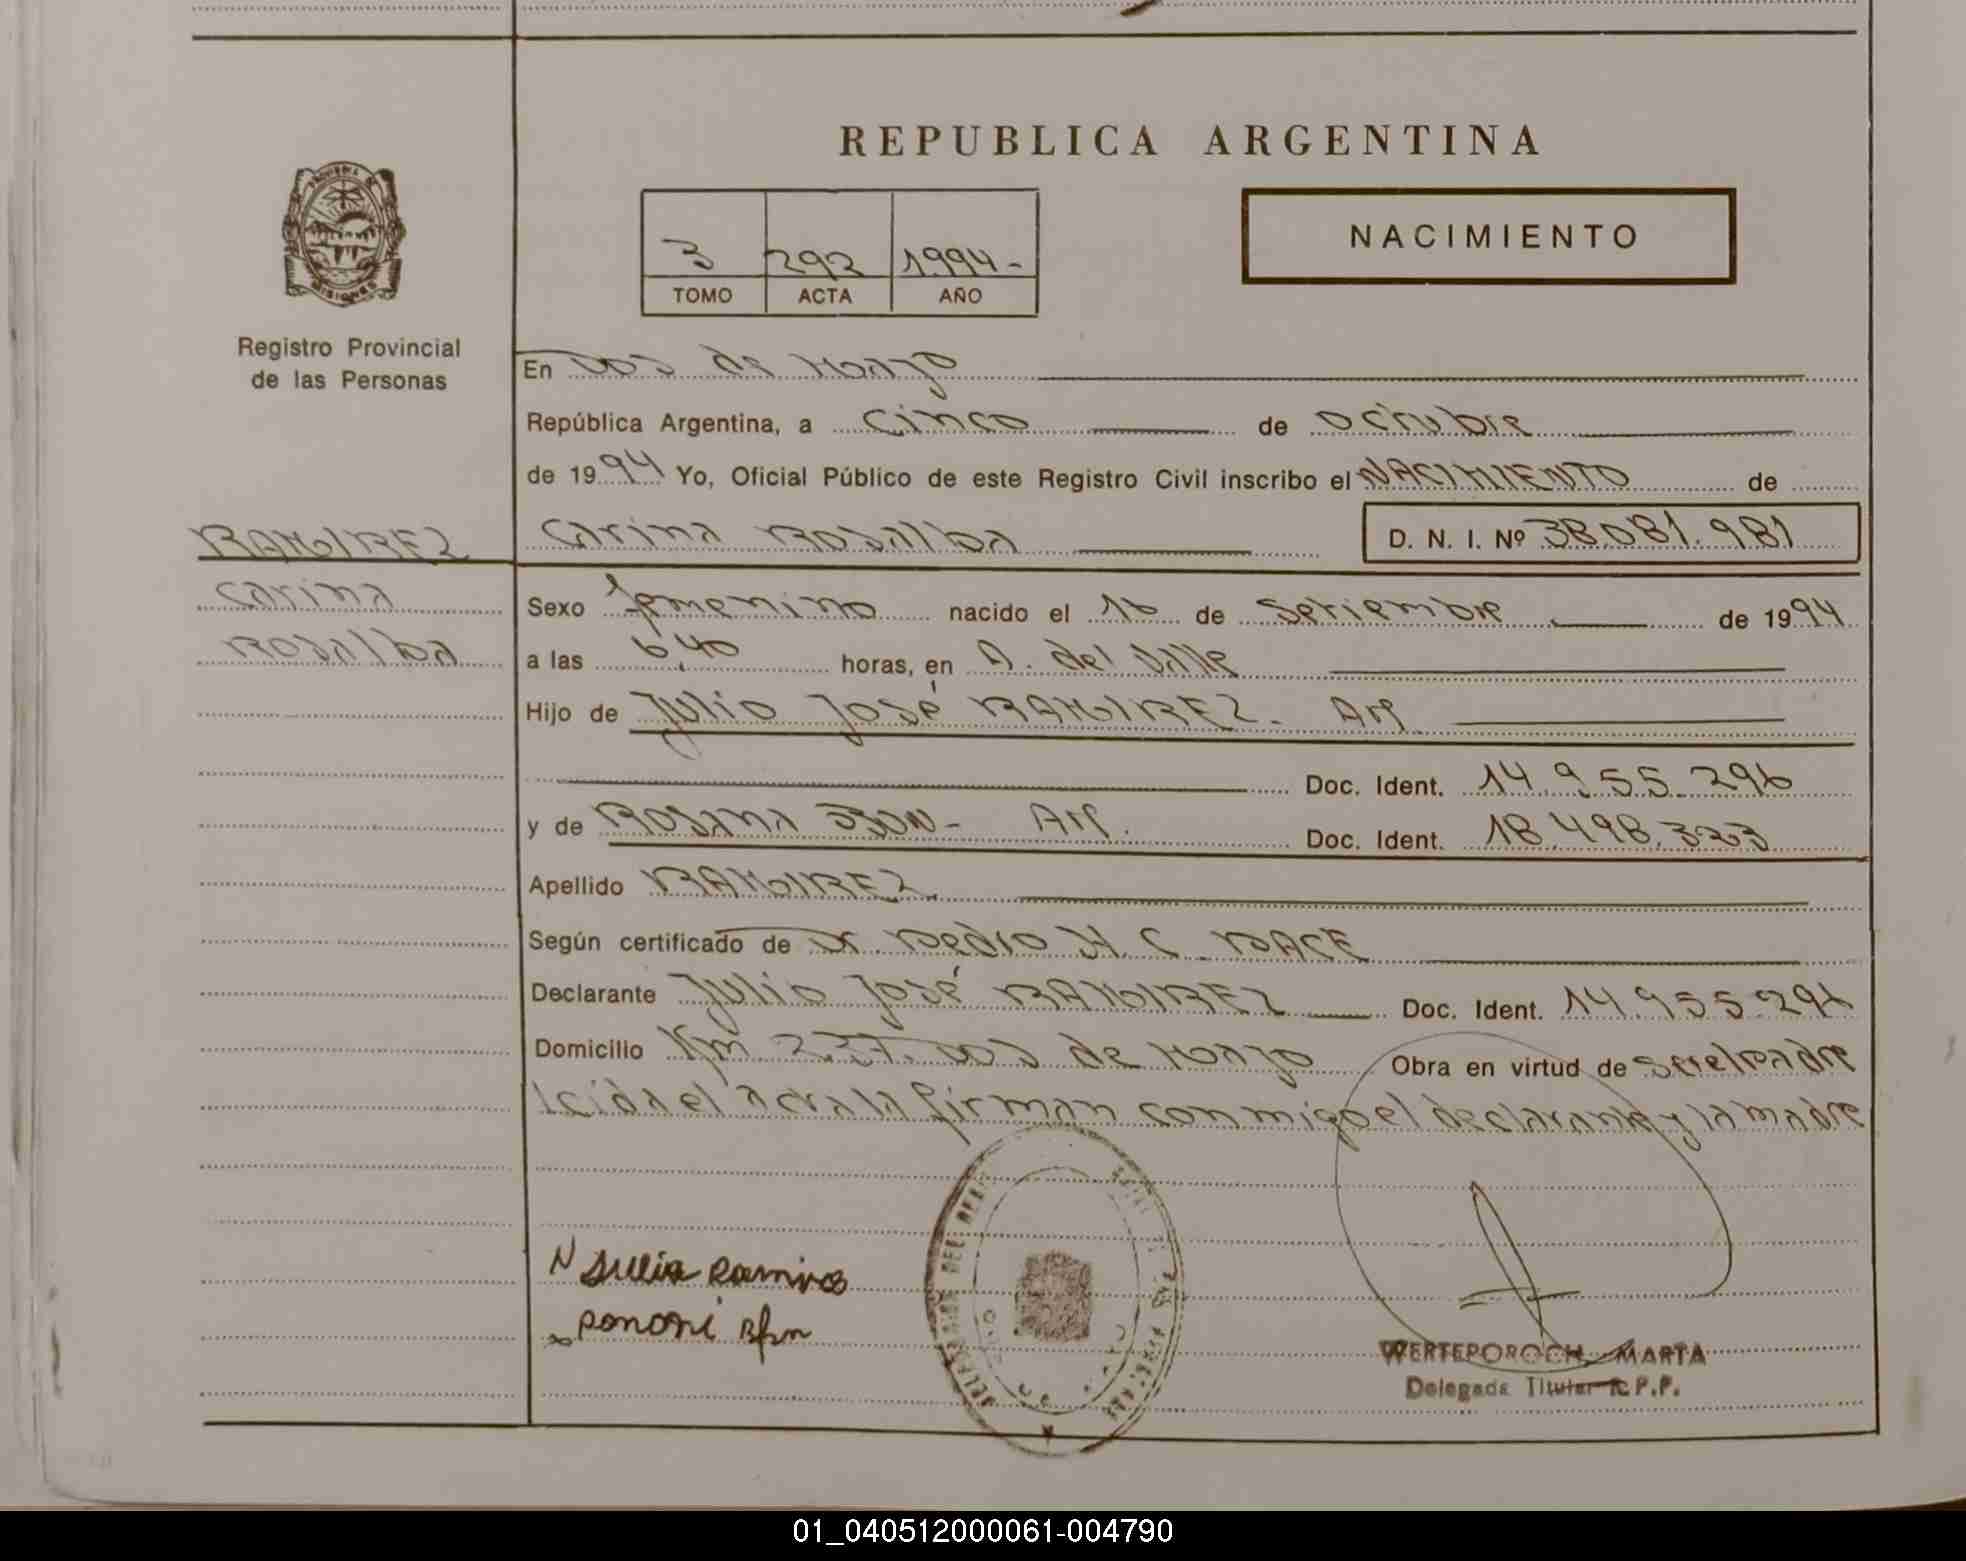 REPUBLICA ARGENTINA
PROVINCIA DE
MISIONES
Registro Provincial
de las Personas
NACIMIENTO
3 292 1994-
TOMO ACTA AÑO
En Dos de Mayo
República Argentina, a cinco de octubre
de 1994 Yo, Oficial Público de este Registro Civil inscribo el NACIMIENTO de
RAMIREZ
Carina Rosalba
D. N. I. Nº 38.081.981
Carina
Rosalba
Sexo femenino nacido el 16 de setiembre de 1994
a las 6,40 horas, en A. del Valle
Hijo de Julio José RAMIREZ. Arg
Doc. Ident. 14.955.296
y de Rosana BON- Arg. Doc. Ident. 18.498.323
Apellido RAMIREZ
Según certificado de Dr. Pedro H. C. PACE
Declarante Julio José RAMIREZ Doc. Ident. 14.955.296
Domicilio Km 237. Dos de Mayo Obra en virtud de ser el padre
Leida el acta la firman conmigo el declarante y la madre
Julio Ramires
WERTEPOROCH MARTA
Delegada Titular R.P.P.
01_040512000061-004790